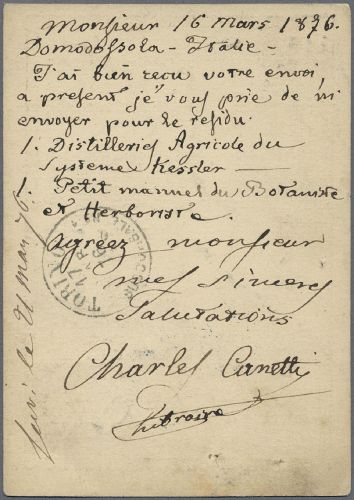 Monsieur 16 Mars 1876.
Domodossola - Italie -
J'ai bien recu votre envoi,
a present je vous prie de m'
envoyer pour le residu:
1. Distilleries Agricole du
Systeme Kessler
1. Petit manuel du Botaniste
et Herboriste.
Agréez monsieur
mes sinceres
Salutations
Charles Canetti
Libraire
TORINO
17
le 21 Mars 76